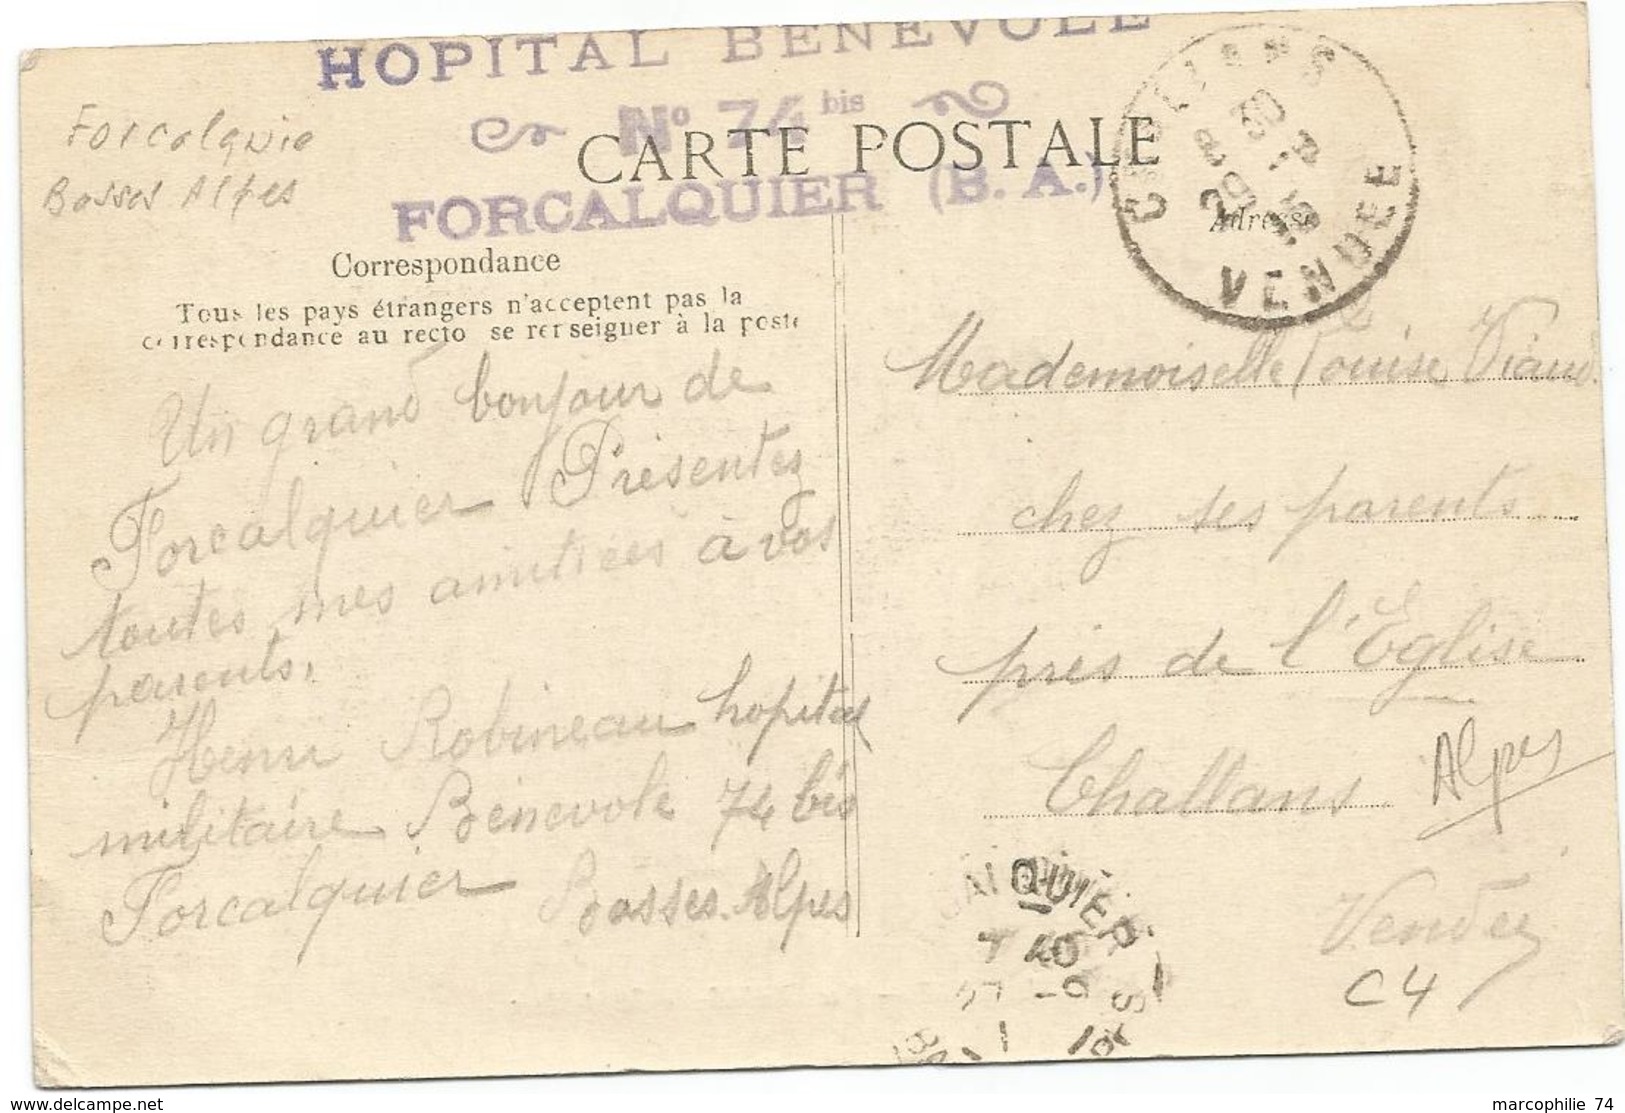 HOPITAL BENEVOLE
No 74 bis
FORCALQUIER (B. A.)
Forcalquie
Basses Alpes
CARTE POSTALE
CHALLANS
VENDEE
Correspondance
Adresse
Tous les pays étrangers n'acceptent pas la
correspondance au recto se renseigner à la poste
Un grand bonjour de
Forcalquier Présentez
toutes mes amitiées à vos
parents.
Henri Robineau hopital
militaire Bénévole 74 bis
Forcalquier Basses-Alpes
Mademoiselle Louise Viaud
chez ses parents
près de l'Eglise
Challans
Alpes
Vendée
C4
QUIER
7 40
www.delcampe.net
marcophilie 74